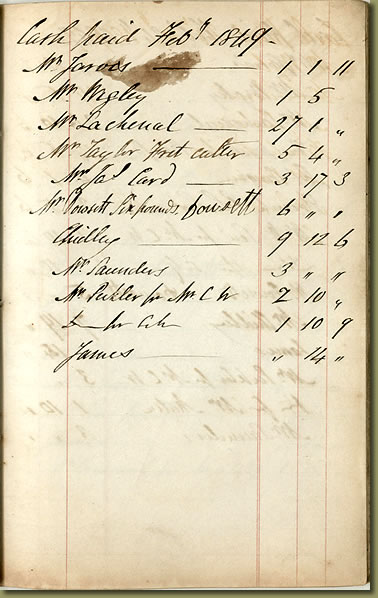 Cash paid Feby 1849 -
Mr Jarvis 1 1 11
Mr Wigley 1 5
Mr Lachenal 27 1 "
Mr Taylor Fret cutter 5 4 "
Mr Jas Card 3 17 3
Mr Dowsett Six pounds. Dowsett 6 " "
Chidley 9 12 6
Mr Saunders 3 " "
Mr Pickler for Mr C W 2 10 "
for 1 10 9
James " 14 "